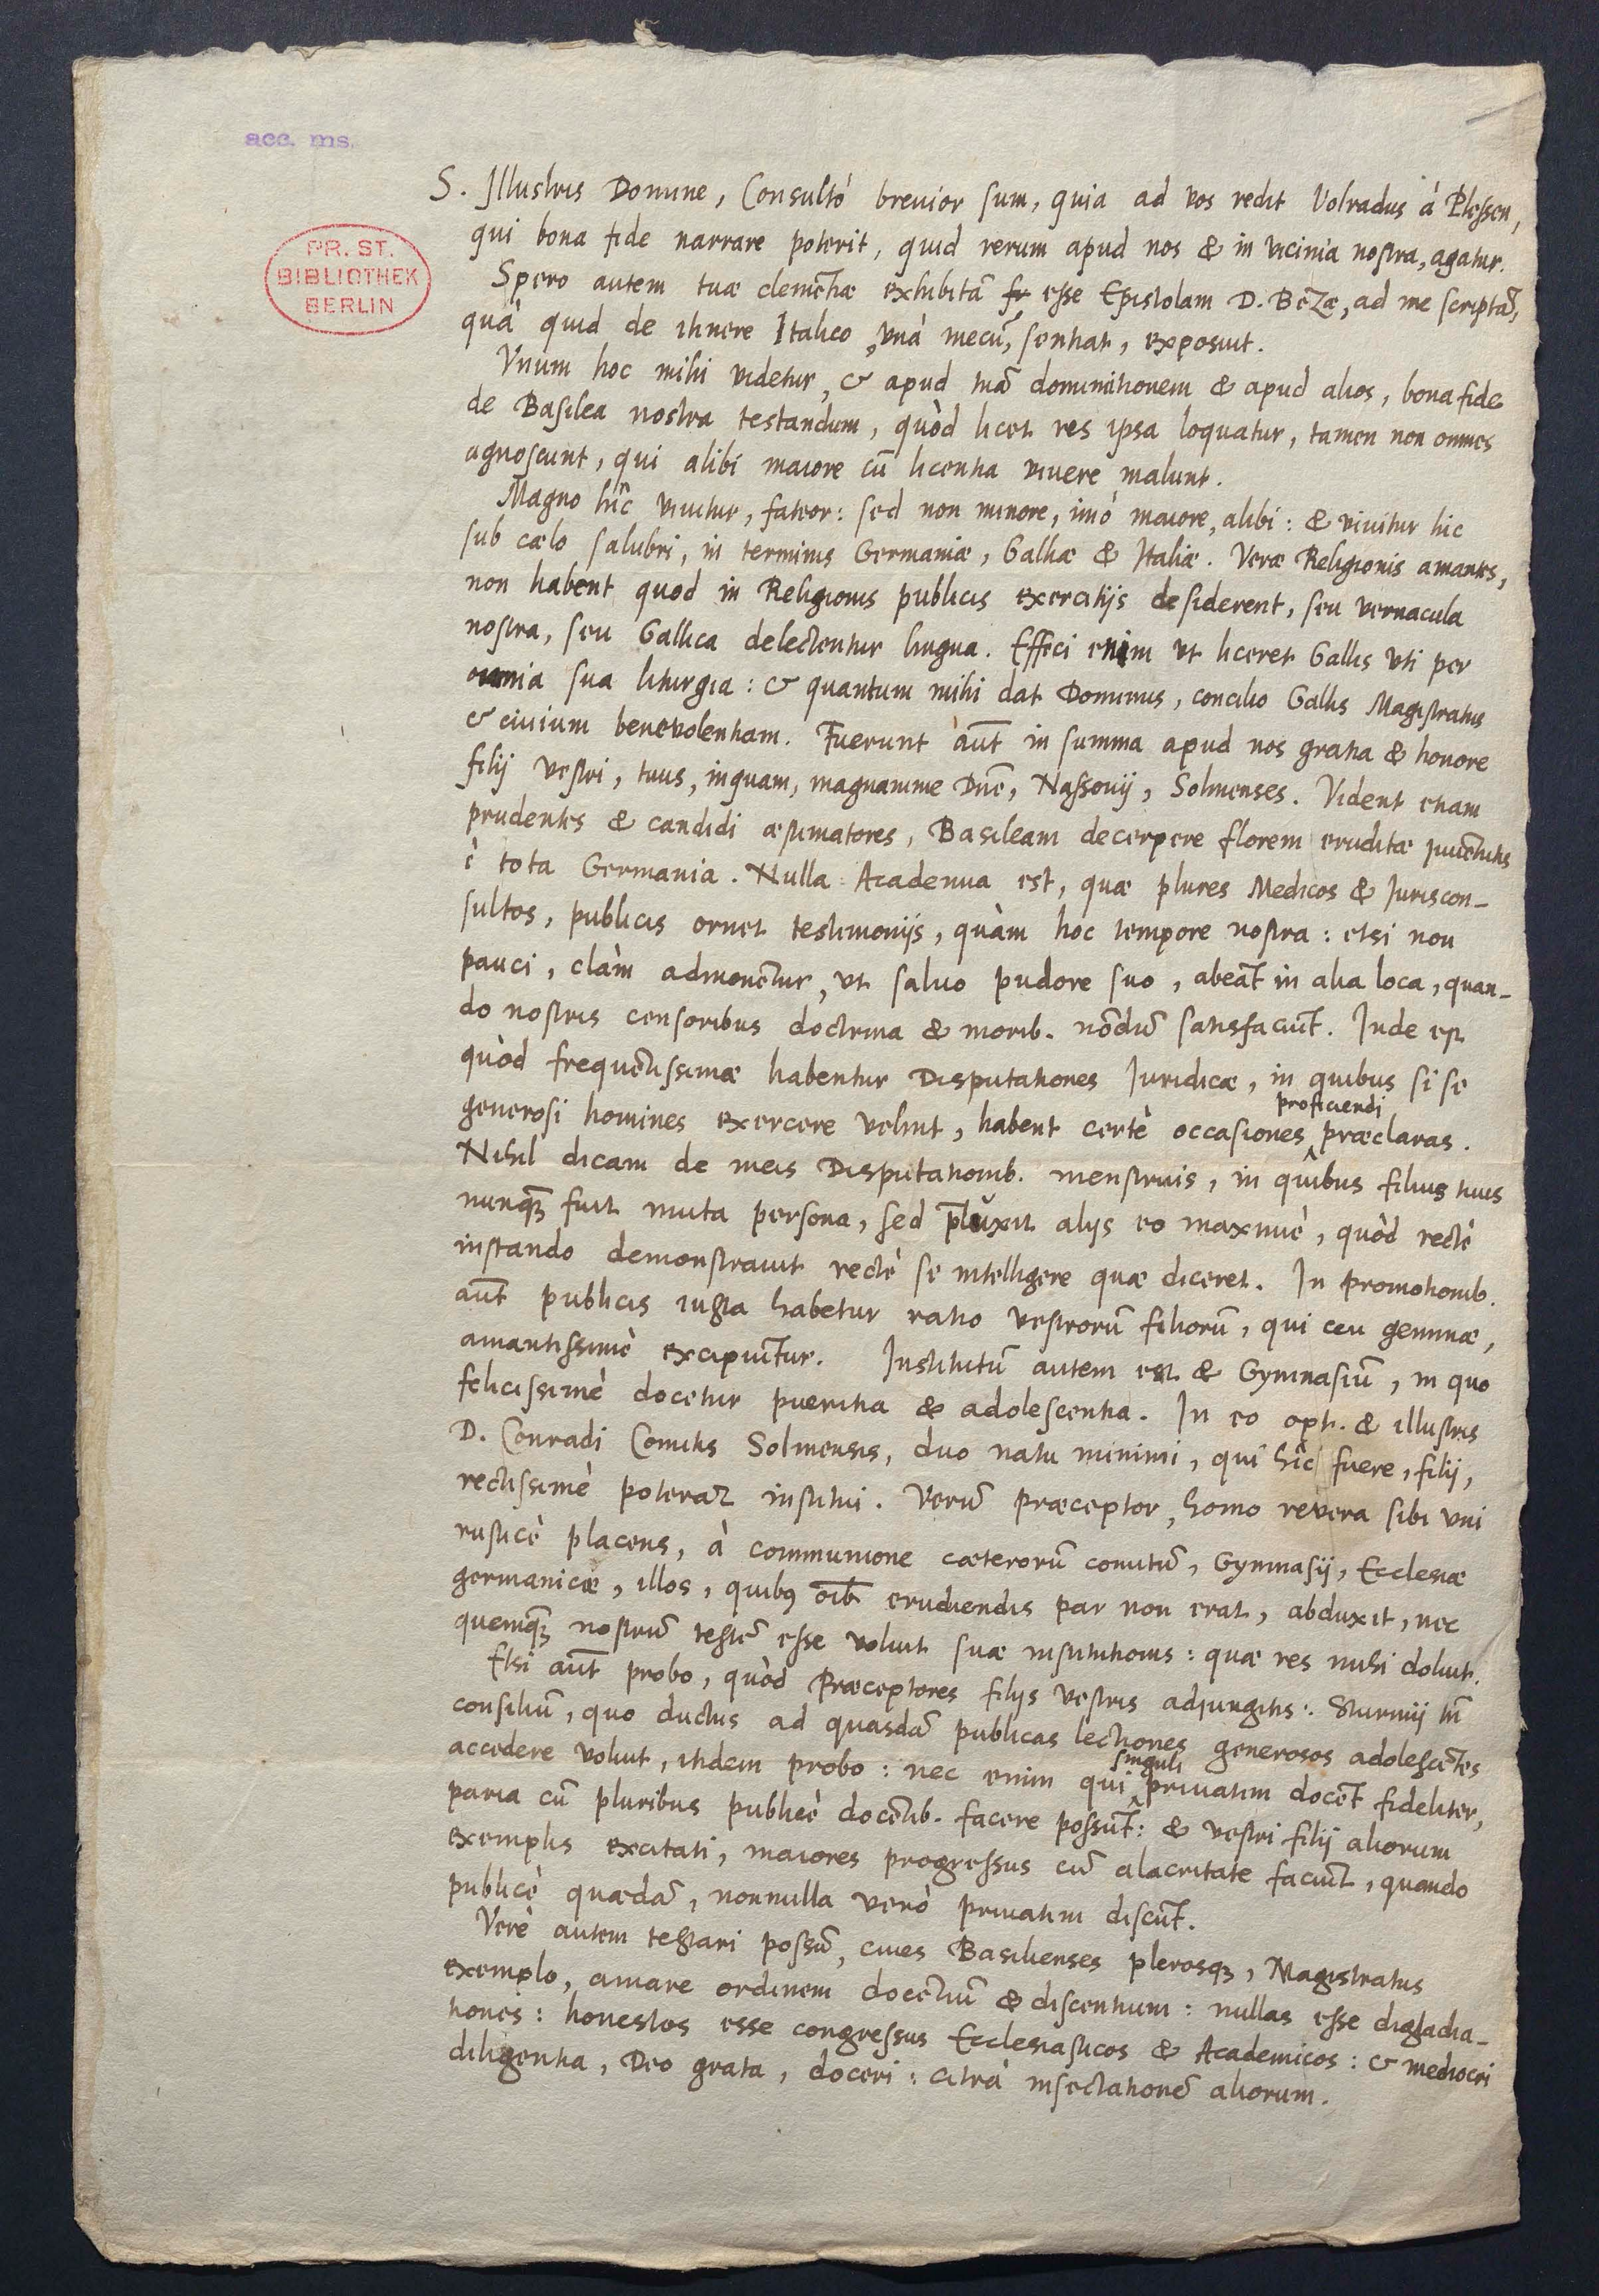 acc. ms.
PR. ST.
BIBLIOTHEK
BERLIN
S. Illustris Domine, Consultò brevior sum, quia ad vos redit Volradus à Plessen,
qui bona fide narrare poterit, quid rerum apud nos & in vicinia nostra, agatur.
Spero autem tuæ clemẽtiæ exhibitã esse Epistolam D. Bezæ, ad me scriptã,
quâ quid de itinere Italico, unà mecũ, sentiat, exposuit.
Vnum hoc mihi videtur, & apud tuã dominitionem & apud alios, bona fide
de Basilea nostra testandum, quòd licet res ipsa loquatur, tamen non omnes
agnoscunt, qui alibi maiore cũ licentia vivere malunt.
Magno hîc vivitur, fateor: sed non minore, imò maiore, alibi: & vivitur hic
sub cælo salubri, in terminis Germaniæ, Galliæ & Italiæ. Veræ Religionis amantes,
non habent quod in Religionis publicis exercitijs desiderent, seu vernacula
nostra, seu Gallica delectentur lingua. Effeci enim vt liceret Gallis vti per
omnia sua liturgia: & quantum mihi dat Dominus, concilio Gallis Magistratus
& civium benevolentiam. Fuerunt aũt in summa apud nos gratia & honore
filij vestri, tuus, inquam, magnanime Dñe, Nassovij, Solmenses. Vident etiam
prudentes & candidi æstimatores, Basileam decerpere florem eruditæ juvẽtutis
è tota Germania. Nulla Academia est, quæ plures Medicos & Juriscon-
sultos, publicis ornet testimonijs, quàm hoc tempore nostra: etsi non
pauci, clàm admonẽtur, vt salvo pudore suo, abeãt in alia loca, quan-
do nostris censoribus doctrina & morib. nõdũ satisfaciũt. Inde est
quòd frequẽtissimæ habentur Disputationes Juridicæ, in quibus si se
generosi homines exercere velint, habent certè occasiones proficiendi præclaras.
Nihil dicam de meis Disputationib. menstruis, in quibus filius tuus
nunqꝫ fuit muta persona, sed p̃luxit alijs eo maximè, quòd rectè
instando demonstravit rectè se intelligere quæ diceret. In promotionib.
aũt publicis iusta habetur ratio vestrorũ filiorũ, qui ceu gemmæ,
amantissimè excipiũtur. Institutũ autem est & Gymnasiũ, in quo
felicissimè docetur pueritia & adolescentia. In eo opt. & illustris
D. Conradi Comitis Solmensis, duo natu minimi, qui hîc fuere, filij,
rectissimè poterãt institui. Verũ præceptor, homo revera sibi uni
rusticè placens, à communione cæterorũ comitũ, Gymnasij, Ecclesiæ
germanicæ, illos, quibꝰ oĩb erudiendis par non erat, abduxit, nec
quemqꝫ nostrũ testẽ esse voluit suæ institutionis: quæ res mihi doluit.
Etsi aũt probo, quòd Præceptores filijs vestris adjungitis: Sturmij tñ
consiliũ, quo ductus ad quasdã publicas lectiones generosos adolescẽtes
accedere voluit, itidem probo: nec enim qui singuli privatim docẽt fideliter,
paria cũ pluribus publicè docẽtib. facere possũt: & vestri filij aliorum
exemplis excitati, maiores progressus cũ alacritate faciũt, quando
publicè quædã, nonnulla verò privatim discũt.
Verè autem testari possũ, cives Basilienses plerosqꝫ, Magistratus
exemplo, amare ordinem docẽtiũ & discentium: nullas esse digladia-
tiones: honestos esse congressus Ecclesiasticos & Academicos: & mediocri
diligentia, Deo grata, doceri: citrà insectationẽ aliorum.